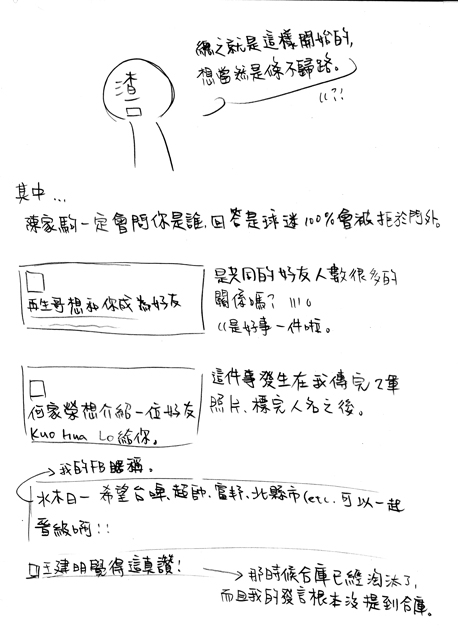 總之就是這樣開始的,
想當然是條不歸路。
渣
((?!
其中...
陳家駒一定會問你是誰,回答是球迷100%會被拒於門外。
再生哥想和你成為好友
是共同的好友人數很多的
關係嗎? |||。
((是好事一件啦。
何家榮想介紹一位好友
Kuo Hua Lo給你。
這件事發生在我傳完2軍
照片、標完人名之後。
我的FB暱稱。
水木日一 希望台啤、超帥、富邦、北縣市(etc.可以一起
晉級啊!!
王建明覺得這真讚!
那時候合庫已經淘汰了,
而且我的發言根本沒提到合庫。